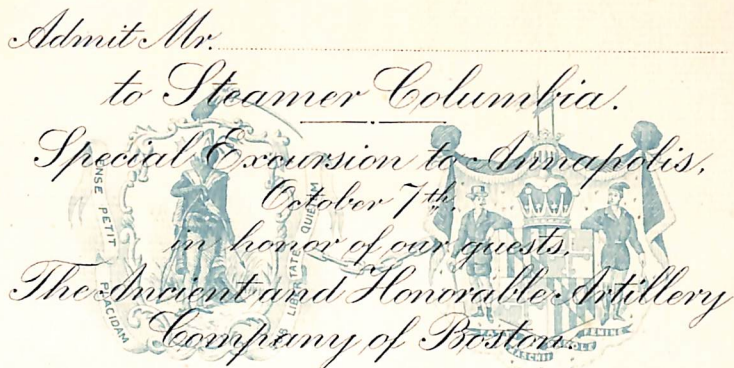 Admit Mr.
to Steamer Columbia.
Special Excursion to Annapolis,
October 7th,
in honor of our guests,
The Ancient and Honorable Artillery
Company of Boston.
ENSE PETIT PLACIDAM
LIBERTATE QUIETEM
FATTI MASCHII PAROLE FEMINE